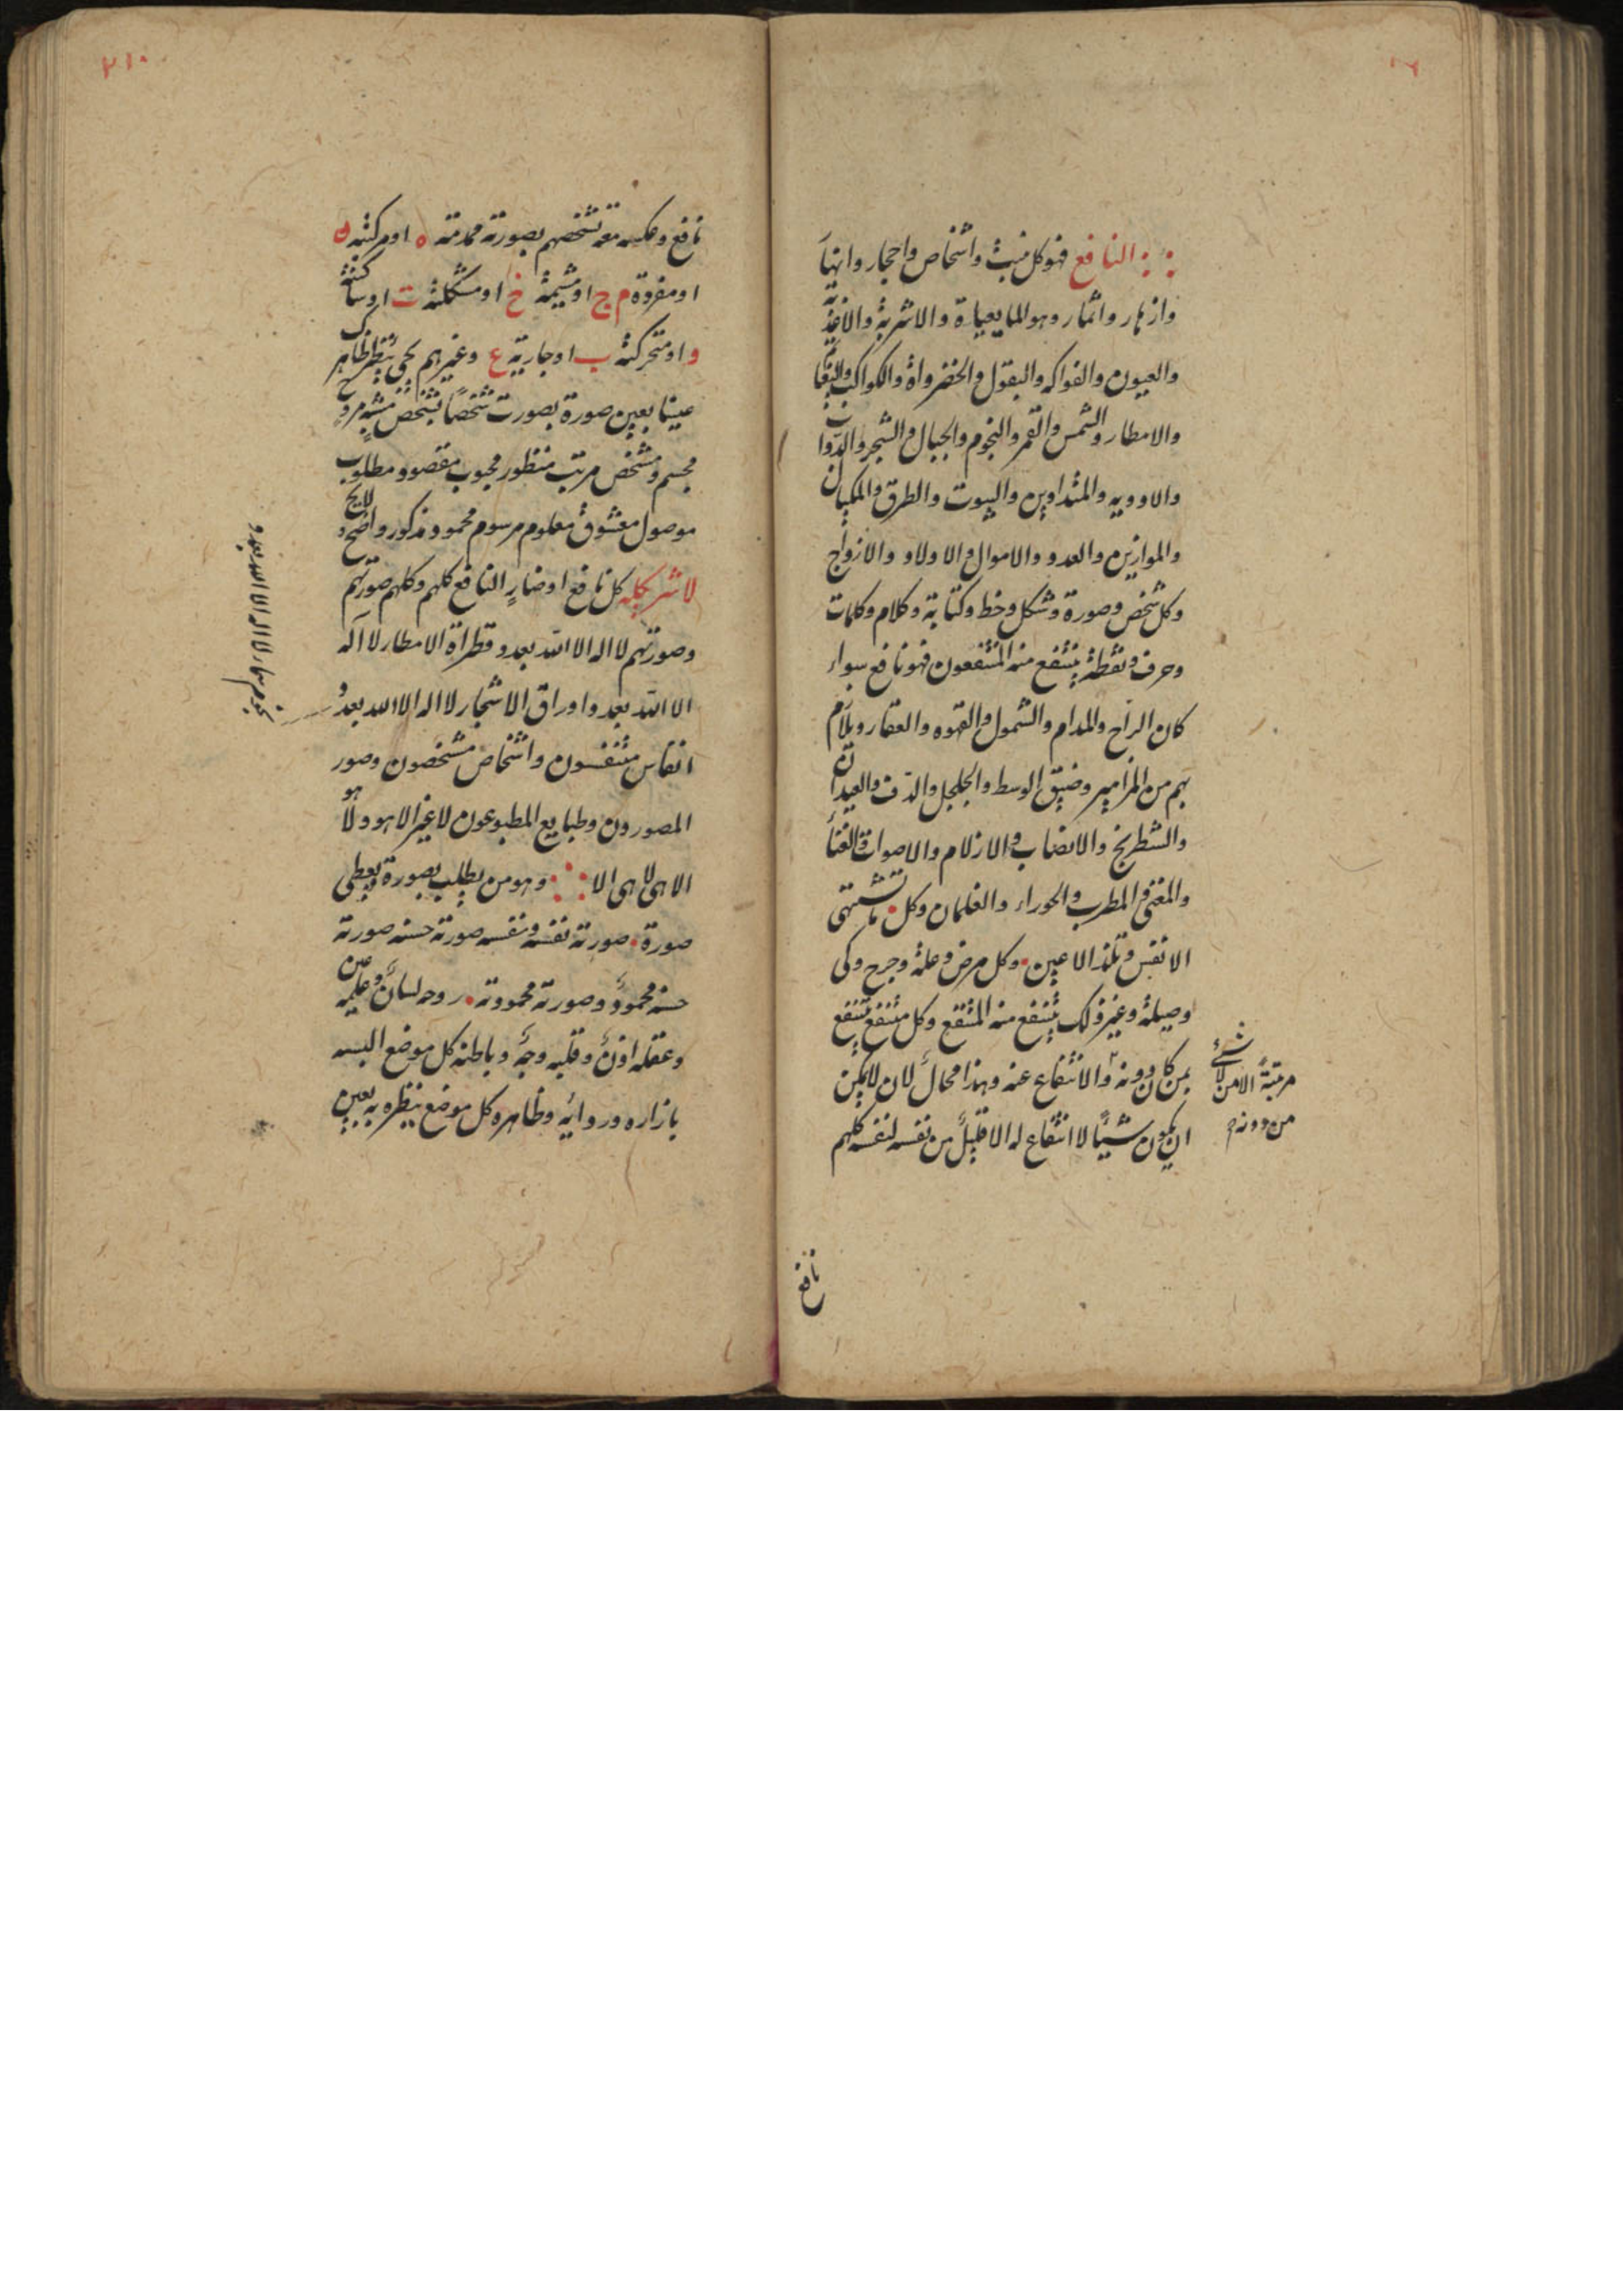 : : النافع فهو كل منبث واشخاص واحجار وانهار
وازهار واثمار وهو المايعياة والاشربة والاغذية
والعيون والفواكه والبقول والخضرواة والكواكب
والامطار والشمس والقمر والنجوم والجبال والشجر والدواب
والاوديه والبيوت والطرق والمكيال
والموازين والعدد والاموال والاولاد والازواج
وكل شخص وصورة وشكل وخط وكتابة وكلام وكلمات
وحرف ونقطة ينتفع منه المنتفعون فهو نافع سواء
كان الراح والمدام والشمول والقهوه والعقار
بهم من المزامير والجلجل والدف والعيدان
والشطرنج والانصاب والازلام والاصوات والغناء
والمغنى والمطرب والحوراء والغلمان وكل ما تشتهى
الانفس وتلذ الاعين وكل مرض وعلة وجرح وكى
وصيلة وغير ذلك ينتفع منه المنتفع وكل منتفع ينتفع
بمن كان دونه والانتفاع عنه وهذا محال لان لايمكن
ان يكون شيئا لا انتفاع له الا من نفسه لنفسه كلهم
من دونه
نافع
٢١٠
نافع وعكسه بصورته او مركبة
او مفردة م ج او خ او مشكلة ت او ساكنة
و او متحركة ب او جارية ع وغيرهم ظاهر
عينا بعين صورة بصورت شخصا بشخص
مجسم ومشخص مرتب منظور محبوب مقصود مطلوب
موصول معشوق معلوم مرسوم محمود مذكور واضح لايح
لا شر كله كل نافع او ضار النافع كلهم وكلهم صورتهم
وصورتهم لا اله الا الله بعدد قطراة الامطار لا اله
الا الله بعدد اوراق الاشجار لا اله الا الله بعدد
انفاس متنفسون واشخاص مشخصون وصور
المصورون وطبايع المطبوعون لا غير الا هو ولا هو
الا هى لا هى الا وهو من يطلب بصورة يعطى
صورة صورته نفسه ونفسه صورته حسنه صورته
حسنه محمود وصورته محمودته روحه لسان وعلمه عين
وعقله اذن وقلبه وجه وباطنه كل موضع البسه
بازاره وردائه وظاهره كل موضع ينظره به بعين
نجوم سماء لا اله الا الله بعدد